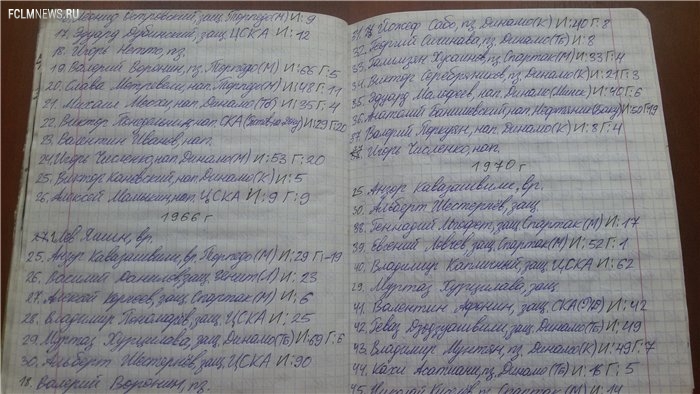 FCLMNEWS.RU
Леонид Островский, защ. Торпедо (М) И: 9
17. Эдуард Дубинский, защ. ЦСКА И: 12
18. Игорь Нетто, пз.
19. Валерий Воронин, пз. Торпедо (М) И: 66 Г: 5
20. Слава Метревели, нап. Торпедо (М) И: 48 Г: 11
21. Михаил Месхи, нап. Динамо (Тб) И: 35 Г: 4
22. Виктор Понедельник, нап. СКА И: 29 Г: 20
23. Валентин Иванов, нап.
24. Игорь Численко, нап. Динамо (М) И: 53 Г: 20
25. Виктор Каневский, нап. Динамо (К) И: 5
26. Алексей Мамыкин, нап. ЦСКА И: 9 Г: 9
1966 г
Лев Яшин, вр.
25. Анзор Кавазашвили, вр. Торпедо (М) И: 29 Г: -19
26. Василий Данилов, защ. Зенит (Л) И: 23
27. Алексей Корнеев, защ. Спартак (М) И: 6
28. Владимир Пономарёв, защ. ЦСКА И: 25
29. Муртаз Хурцилава, защ. Динамо (Тб) И: 69 Г: 6
30. Альберт Шестернёв, защ. ЦСКА И: 90
18. Валерий Воронин, пз.
31. Йожеф Сабо, пз. Динамо (К) И: 40 Г: 8
32. Георгий Сичинава, пз. Динамо (Тб) И: 8
33. Галимзян Хусаинов, пз. Спартак (М) И: 33 Г: 4
34. Виктор Серебряников, пз. Динамо (К) И: 21 Г: 3
35. Эдуард Малофеев, нап. Динамо (Минск) И: 40 Г: 6
36. Анатолий Банишевский, нап. Нефтяник (Баку) И: 50 Г: 19
37. Валерий Поркуян, нап. Динамо (К) И: 8 Г: 4
Игорь Численко, нап.
1970 г
25. Анзор Кавазашвили, вр.
30. Альберт Шестернёв, защ.
38. Геннадий Логофет, защ. Спартак (М) И: 17
39. Евгений Ловчев, защ. Спартак (М) И: 52 Г: 1
40. Владимир Капличный, защ. ЦСКА И: 62
29. Муртаз Хурцилава, защ.
41. Валентин Афонин, защ. СКА И: 42
42. Реваз Дзодзуашвили, защ. Динамо (Тб) И: 49
43. Владимир Мунтян, пз. Динамо (К) И: 49 Г: 7
44. Кахи Асатиани, пз. Динамо (Тб) И: 16 Г: 5
45. Николай Киселёв, пз. Спартак (М) И: 14